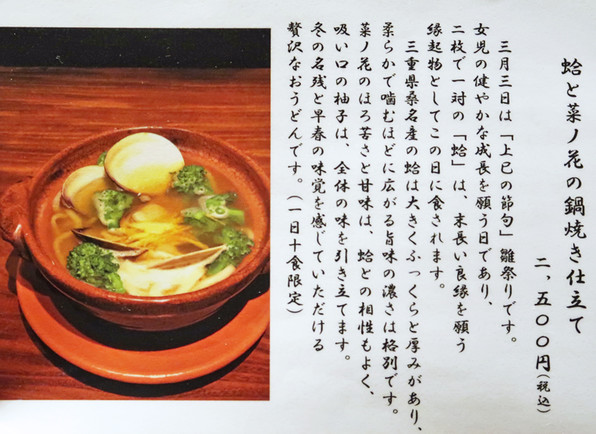 蛤と菜ノ花の鍋焼き仕立て
二,五〇〇円(税込)
三月三日は「上巳の節句」雛祭りです。
女児の健やかな成長を願う日であり、
二枚で一対の「蛤」は、末長い良縁を願う
縁起物としてこの日に食されます。
三重県桑名産の蛤は大きくふっくらと厚みがあり、
柔らかで噛むほどに広がる旨味の濃さは格別です。
菜ノ花のほろ苦さと甘味は、蛤との相性もよく、
吸い口の柚子は、全体の味を引き立てます。
冬の名残と早春の味覚を感じていただける
贅沢なおうどんです。(一日十食限定)